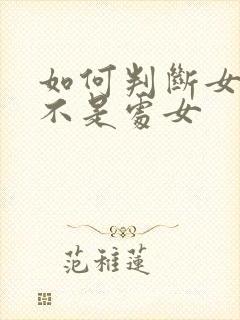 如何判斷女
不是處女
范稚蓮